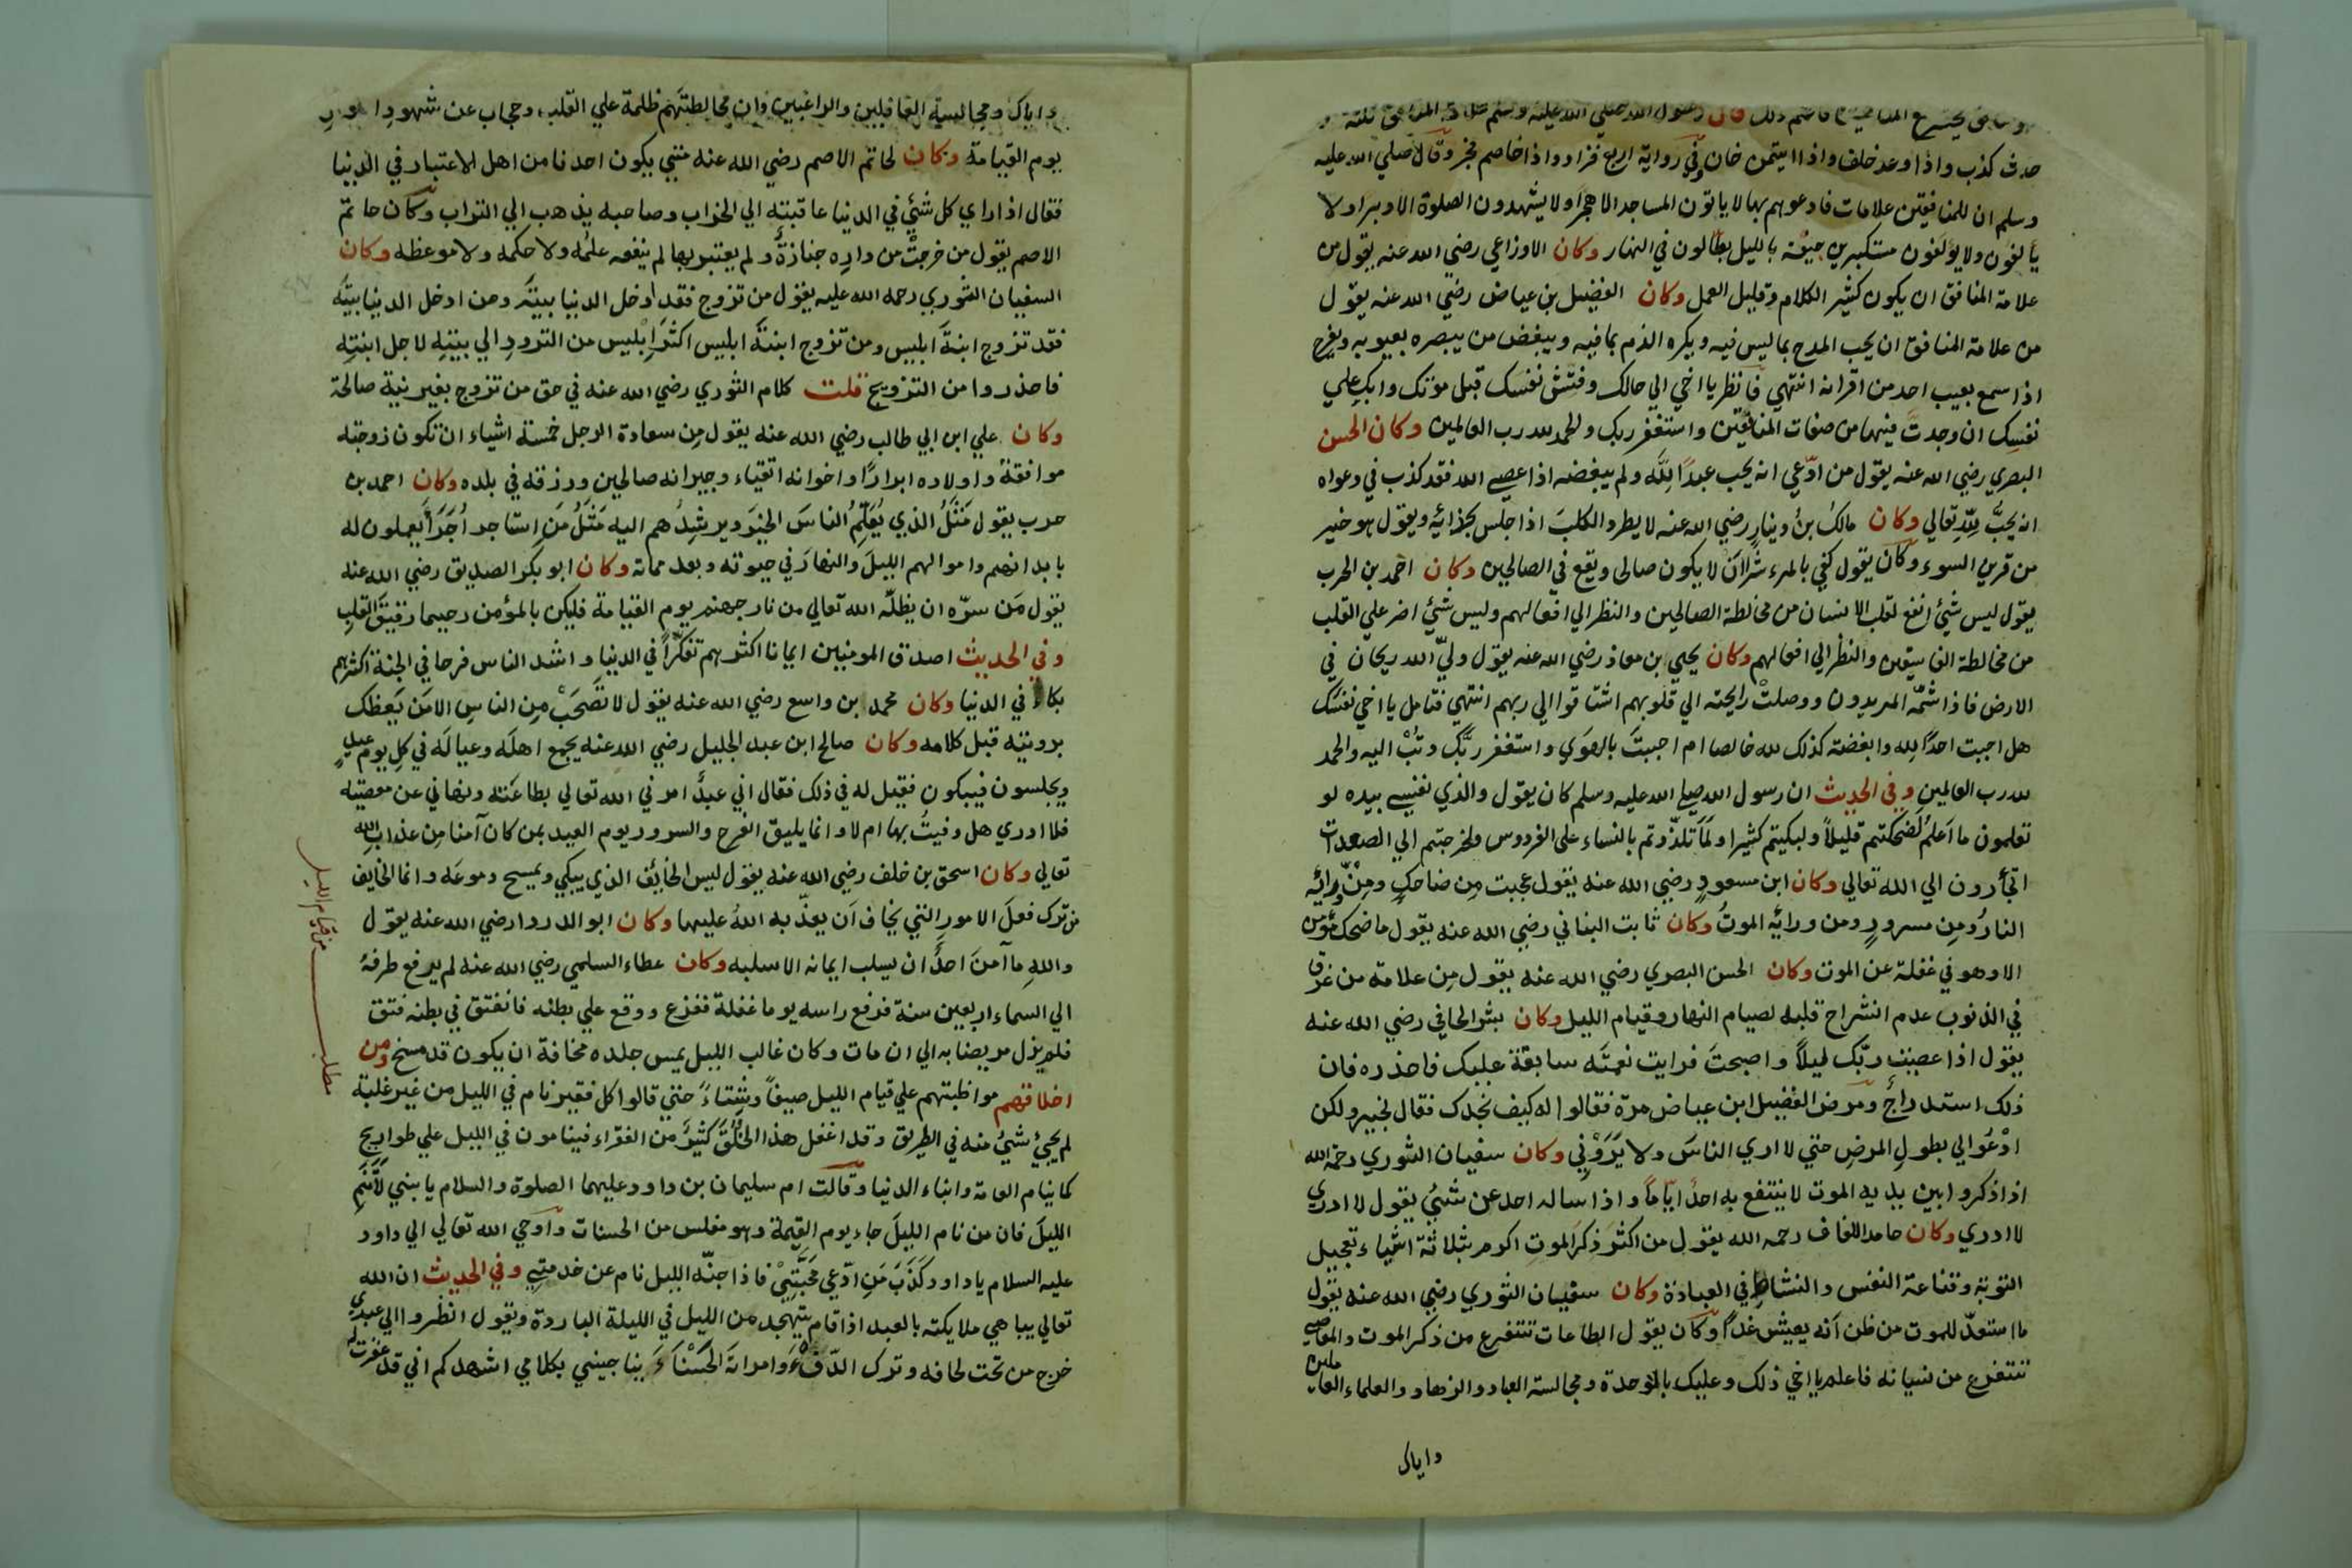 المنافقين فاعلم ذلك قال رسول الله صلي الله عليه وسلم علامة المنافق ثلثة
حدث كذب واذا وعد خلف واذا ايتمن خان وفي رواية اربع فزاد واذا خاصم فجر وقال صلي الله عليه
وسلم ان للمنافقين علامات فادعوهم بها لا ياتون المساجد الا هجرا ولا يشهدون الصلوة الا دبرا ولا
يألفون ولا يؤلفون مستكبرين جيفة بالليل بطالون في النهار وكان الاوزاعي رضي الله عنه يقول من
علامة المنافق ان يكون كثير الكلام وقليل العمل وكان الفضيل بن عياض رضي الله عنه يقول
من علامة المنافق ان يحب المدح بما ليس فيه ويكره الذم بما فيه ويبغض من يبصره بعيوبه ويفرح
اذا سمع بعيب احد من اقرانه انتهي فانظر يا اخي الي حالك وفتش نفسك قبل موتك وابك علي
نفسك ان وجدت فيها من صفات المنافقين واستغفر ربك والحمد لله رب العالمين وكان الحسن
البصري رضي الله عنه يقول من ادّعي انه يحب عبدًا لِلّه ولم يبغضه اذا عصي الله فقد كذب في دعواه
انه يحبّ للّه تعالي وكان مالك بن دينار رضي الله عنه لا يطرد الكلب اذا جلس بحذائه ويقول هو خير
من قرين السوء وكان يقول كفي بالمرء شرا ان لا يكون صالحا ويقع في الصالحين وكان احمد بن الحرب
يقول ليس شيئ انفع لقلب الانسان من مخالطة الصالحين والنظر الي افعالهم وليس شيئ اضر علي القلب
من مخالطة الفاسقين والنظر الي افعالهم وكان يحيي بن معاذ رضي الله عنه يقول وليّ الله ريحان في
الارض فاذا شمّه المريدون ووصلت رايحته الي قلوبهم اشتاقوا الي ربهم انتهي فتامل يا اخي نفسك
هل احببت احدًا لله وابغضته كذلك لله خالصا ام احببتَ بالهوي واستغفر ربّك وتُبْ اليه والحمد
لله رب العالمين وفي الحديث ان رسول الله صلي الله عليه وسلم كان يقول والذي نفسي بيده لو
تعلمون ما اعلم لضحكتم قليلاً ولبكيتم كثيرا ولما تلذّذتم بالنساء علي الفردوس ولخرجتم الي الصعدات
تجأرون الي الله تعالي وكان ابن مسعود رضي الله عنه يقول عجبت مِن ضاحكٍ ومِنْ ورائه
النارُ ومن مسرورٍ ومن ورائِه الموتُ وكان ثابت البناني رضي الله عنه يقول ما ضحك مؤمن
الا وهو في غفلة عن الموت وكان الحسن البصري رضي الله عنه يقول مِن علامة من غرق
في الذنوب عدم انشراح قلبه لصيام النهار وقيام الليل وكان بشر الحافي رضي الله عنه
يقول اذا عصيت ربّك ليلاً واصبحتَ فرايت نعمتَه سابقة عليك فاحذره فان
ذلك استدراجٌ ومرض الفضيل ابن عياض مرّة فقالوا له كيف نجدك فقال بخير ولكن
ادْعُوا لي بطول المرضِ حتي لا اري الناسَ ولا يَرَوْنِي وكان سفيان الثوري رحمة الله
اذا ذكروا بين يديه الموت لا ينتفع به احدٌ ايّاماً واذا ساله احد عن شيئ يقول لا ادري
لا ادري وكان حامد اللفاف رحمه الله يقول من اكثر ذِكرَ الموت اكرم بثلاثة اشياء تعجيل
التوبة وقناعة النفس والنشاط في العبادة وكان سفيان الثوري رضي الله عنه يقول
ما استعدّ للموت من ظن انّه يعيش غداً وكان يقول الطاعات تتفرع من ذكر الموت والمعاصي
تتفرع من نسيانه فاعلم يا اخي ذلك وعليك بالوحدة ومجالسة العباد والزهاد والعلماء العاملين
واياك
واياك ومجالسة الغافلين والراغبين وان مخالطتَهم ظلمة علي القلب وحجاب عن شهود امور
يوم القيامة وكان لحاتم الاصم رضي الله عنه متي يكون احدنا من اهل الاعتبار في الدنيا
فقال اذا راي كل شيئ في الدنيا عاقبته الي الخراب وصاحبه يذهب الي التراب وكان حاتم
الاصم يقول من خرجتْ من دارِه جنازةٌ ولم يعتبر بها لم ينفعه علمُه ولا حكمه ولا موعظه وكان
السفيان الثوري رحمه الله عليه يقول من تزوج فقد ادخل الدنيا بيتَه ومن ادخل الدنيا بيتَه
فقد تزوج ابنةَ ابليس ومن تزوج ابنةَ ابليس اكثرَ ابليس من التردد الي بيتِهِ لاجل ابنتِه
فاحذروا من التزويج قلت كلام الثوري رضي الله عنه في حق من تزوج بغير نية صالحة
وكان علي ابن ابي طالب رضي الله عنه يقول مِن سعادة الرجل خمسة اشياء ان تكون زوجته
موافقةً واولاده ابرارًا واخوانه اتقياء وجيرانه صالحين ورزقه في بلده وكان احمد بن
حرب يقول مَثَلُ الذي يُعَلِّمُ الناسَ الخيرَ ويرشِدُهم اليه مَثَلُ مَنِ استاجر اُجَرَاءَ يعملون له
بابدانهم واموالهم الليلَ والنهارَ في حيوته وبعد مماته وكان ابو بكر الصديق رضي الله عنه
يقول مَن سرّه ان يظلّه الله تعالي من نار جهنم يوم القيامة فليكن بالمؤمن رحيما رقيقَ القلبِ
وفي الحديث اصدق المومنين ايمانا اكثرهم تفكّراً في الدنيا واشد الناس فرحا في الجنة اكثرهم
بكاء في الدنيا وكان محمد بن واسع رضي الله عنه يقول لا تصحَبْ مِن الناسِ الا مَن يَعظك
برويته قبل كلامه وكان صالح ابن عبد الجليل رضي الله عنه يجمع اهلَه وعيالَه في كلِ يومِ عيدٍ
ويجلسون فيبكون فقيل له في ذلك فقال اني عبدٌ امرني الله تعالي بطاعَته ونهاني عن معصيته
فلا ادري هل وفيتُ بها ام لا وانما يليق الفرح والسرور يوم العيد بمن كان آمنا مِن عذابِ الله
تعالي وكان اسحق بن خلف رضي الله عنه يقول ليس الخائف الذي يبكي ويمسح دموعَه وانما الخايف
من ترك فعلَ الامور التي يخاف اَن يعذّبه اللهُ عليها وكان ابو الدردا رضي الله عنه يقول
واللهِ ما آمنَ احدٌ ان يسلب ايمانه الا سلبه وكان عطاء السلمي رضي الله عنه لم يرفع طرفهُ
الي السماء اربعين سنة فرفع راسه يوما غفلة ففزع ووقع علي بطنه فانفتق في بطنه فتق
فلم يزل مريضا به الي ان مات وكان غالب الليل يمس جلده مخافة ان يكون قد مسخ ومن
اخلاقهم مواظبتهم علي قيام الليل صيفاً وشتاءً حتي قالوا كل فقير نام في الليل من غير غلبة
لم يجئ شيئ منه في الطريق وقد اغفل هذا الخُلُقَ كثيرٌ من الفقراء فينامون في الليل علي طواريح
كما ينام العامة وابناء الدنيا وقالت ام سليمان بن داود عليهما الصلوة والسلام يا بني لا تَنَمِ
الليلَ فان من نام الليلَ جاء يوم القيمة وهو مفلس من الحسنات واوحي الله تعالي الي داود
عليه السلام يا داود كَذَبَ مَنِ ادّعي مَحَبَّتِيْ فاذا جنّه الليل نام عن خدمتِي وفي الحديث ان الله
تعالي يباهي ملايكته بالعبد اذا قام يتهجد من الليل في الليلة الباردة ويقول انظروا الي عبدي
خرج من تحت لحافه وترك الدّفْءَ وامراتَه الحَسْنَاءَ يناجيني بكلامي اشهدكم اني قد غفرت له
مطلب من قيام الليل